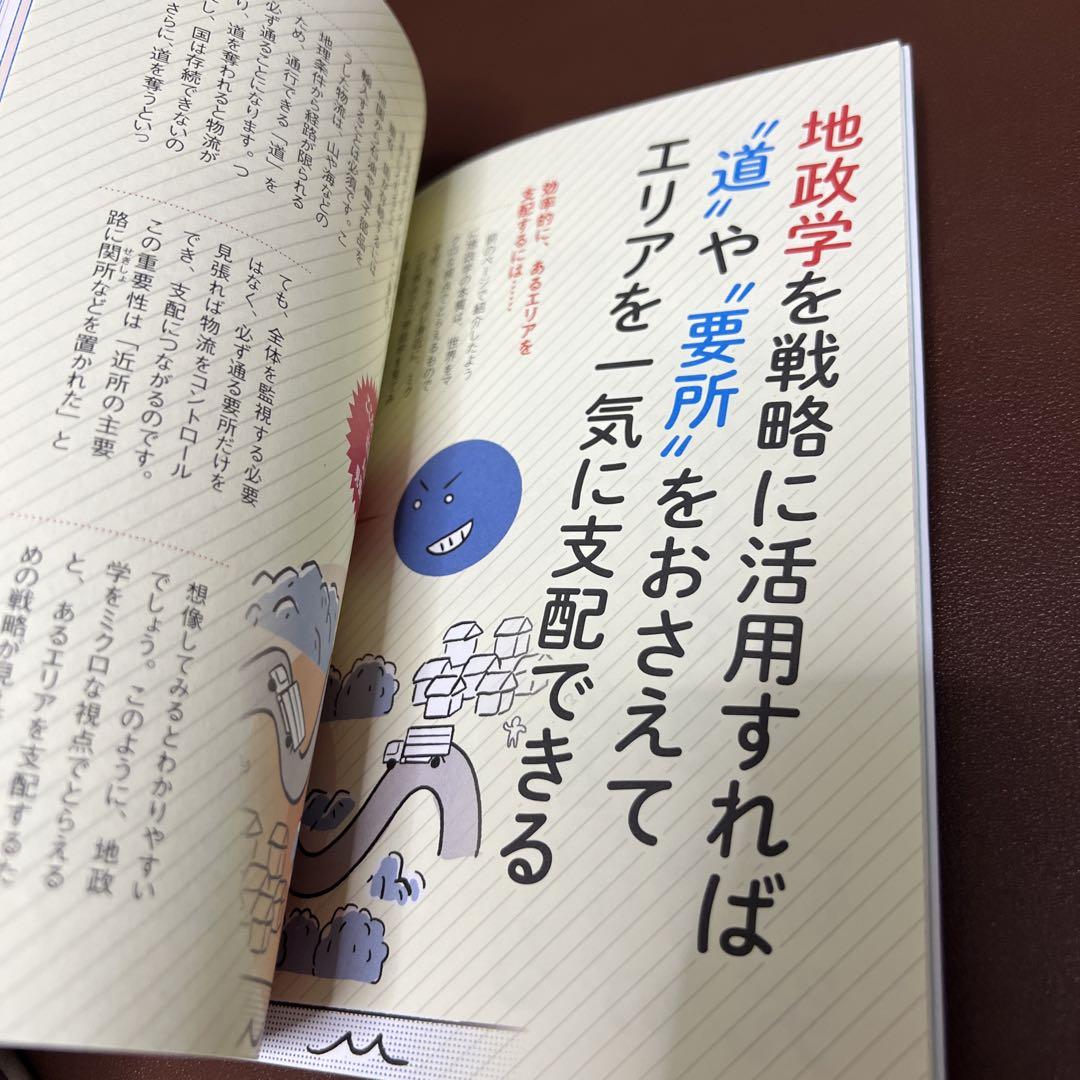 地政学を戦略に活用すれば
"道"や"要所"をおさえて
エリアを一気に支配できる
効率的に、あるエリアを
支配するには……
前のページで紹介したよう
輸入することは必須です。こ
うした物流は、山や海などの
地理条件から経路が限られる
ため、通行できる「道」を
必ず通ることになります。つ
り、道を奪われると物流が
し、国は存続できないの
さらに、道を奪うといっ
ても、全体を監視する必要
はなく、必ず通る要所だけを
見張れば物流をコントロール
でき、支配につながるのです。
この重要性は「近所の主要
路に関所などを置かれた」と
せきしょ
想像してみるとわかりやすい
でしょう。このように、地政
学をミクロな視点でとらえる
と、あるエリアを支配するた
めの戦略が見